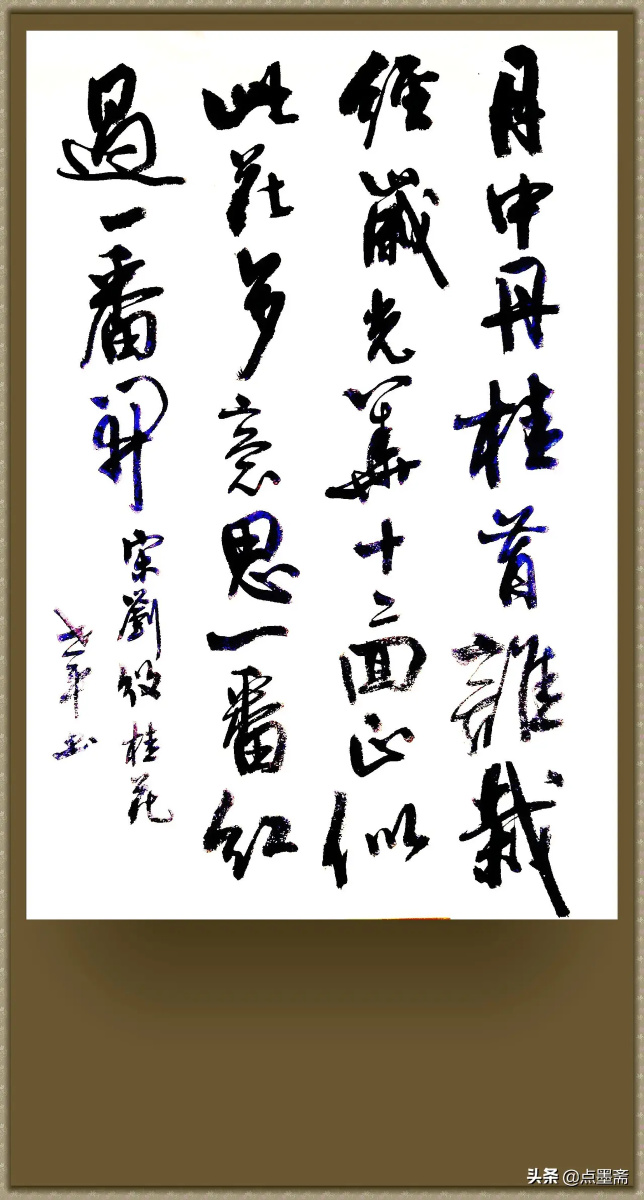 月中丹桂首誰栽
經歲光華十二囬正似
此花多意思一番紅
過一番開
宋劉桂花
书
头条 @点墨斋